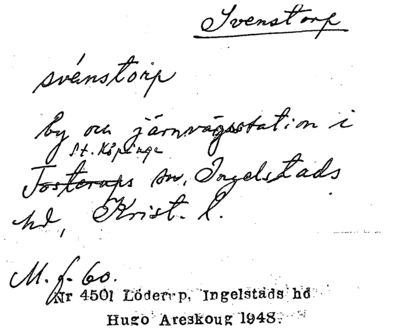 Svenstorp
svénstorp
by och järnvägsstation i
St. Köpinge
Tosterups sn, Ingelstads
hd, Krist. l.
M. f. 60.
Nr 4501 Löderup, Ingelstads hd
Hugo Areskoug 1948.